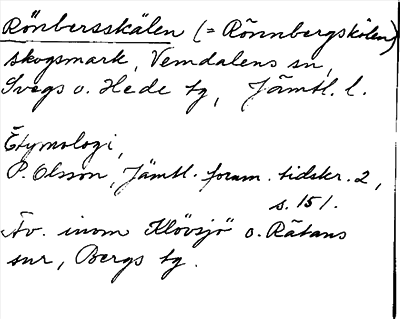 Rönbersskälen (= Rönnbergskölen)
skogsmark, Vemdalens sn,
Svegs o. Hede tg, Jämtl. l.
Etymologi,
P. Olsson, Jämtl. fornm. tidskr. 2,
s. 151.
Äv. inom Klövsjö o. Rätans
snr, Bergs tg.